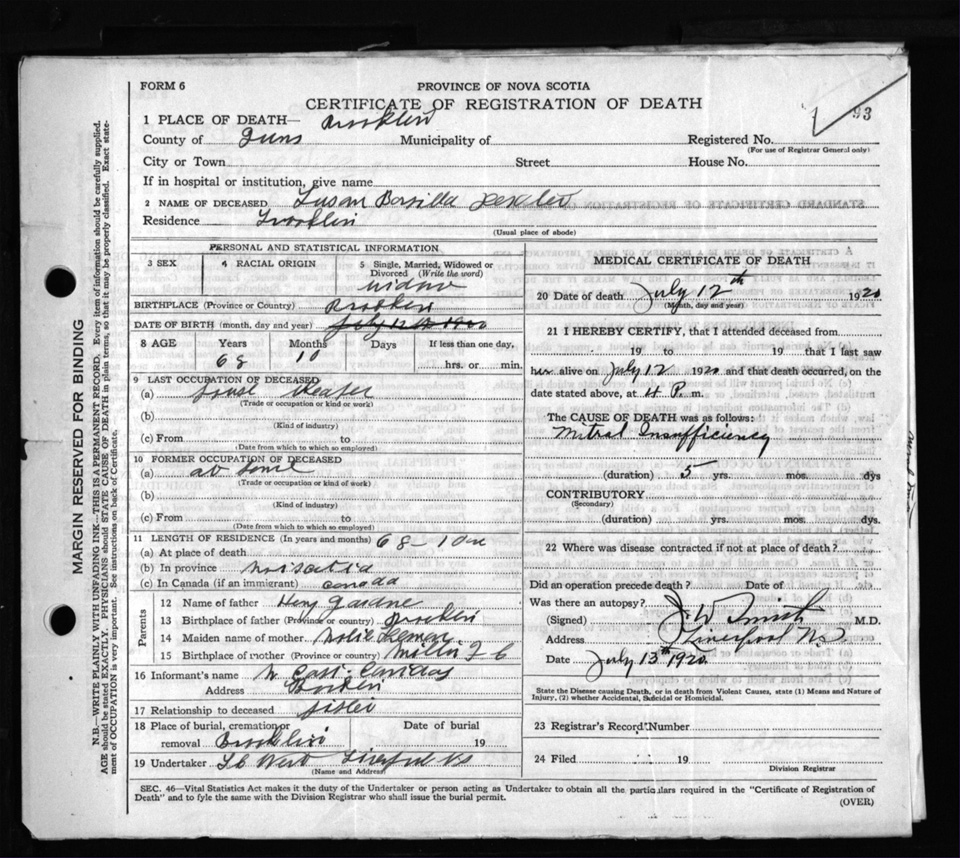 FORM 6
PROVINCE OF NOVA SCOTIA
CERTIFICATE OF REGISTRATION OF DEATH
93
1 PLACE OF DEATH— Brooklin
County of Quns Municipality of Registered No.
(For use of Registrar General only)
City or Town Street House No.
If in hospital or institution, give name
2 NAME OF DECEASED Susan
Residence Brooklin
(Usual place of abode)
PERSONAL AND STATISTICAL INFORMATION
3 SEX
4 RACIAL ORIGIN
5 Single, Married, Widowed or Divorced (Write the word)
widow
BIRTHPLACE (Province or Country) Brooklin
DATE OF BIRTH (month, day and year) July 12 th 1920
8 AGE Years Months Days If less than one day,
68 10 hrs. or min.
9 LAST OCCUPATION OF DECEASED
(a) House Keeper
(Trade or occupation or kind or work)
(b)
(Kind of industry)
(c) From to
(Date from which to which so employed)
10 FORMER OCCUPATION OF DECEASED
(a) at
(Trade or occupation or kind of work)
(b)
(Kind of industry)
(c) From to
(Date from which to which so employed)
11 LENGTH OF RESIDENCE (In years and months) 68 - 10
(a) At place of death
(b) In province
(c) In Canada (if an immigrant) canada
Parents
12 Name of father
13 Birthplace of father (Province or country) Brooklin
14 Maiden name of mother
15 Birthplace of mother (Province or country)
16 Informant's name
Address Brooklin
17 Relationship to deceased sister
18 Place of burial, cremation or removal Brooklin Date of burial 19
19 Undertaker West Liverpool NS
(Name and Address)
MEDICAL CERTIFICATE OF DEATH
20 Date of death July 12th 1920
(Month, day and year)
21 I HEREBY CERTIFY, that I attended deceased from
19 to 19 that I last saw
her alive on July 12 1920 and that death occurred, on the
date stated above, at 4 P. m.
The CAUSE OF DEATH was as follows:
Mitral Insufficiency
(duration) 5 yrs. mos. dys
CONTRIBUTORY
(Secondary)
(duration) yrs. mos. dys.
22 Where was disease contracted if not at place of death?
Did an operation precede death? Date of
Was there an autopsy?
(Signed) J W Smith M.D.
Address Liverpool N.S.
Date July 13th 1920
State the Disease causing Death, or in death from Violent Causes, state (1) Means and Nature of
Injury, (2) whether Accidental, Suicidal or Homicidal.
23 Registrar's Record Number
24 Filed 19
Division Registrar
SEC. 46—Vital Statistics Act makes it the duty of the Undertaker or person acting as Undertaker to obtain all the particulars required in the "Certificate of Registration of
Death" and to fyle the same with the Division Registrar who shall issue the burial permit.
(OVER)
MARGIN RESERVED FOR BINDING
N.B.—WRITE PLAINLY WITH UNFADING INK—THIS IS A PERMANENT RECORD. Every item of information should be carefully supplied.
AGE should be stated EXACTLY. PHYSICIANS should STATE CAUSE OF DEATH in plain terms, so that it may be properly classified. Exact state-
ment of OCCUPATION is very important. See instructions on back of Certificate.